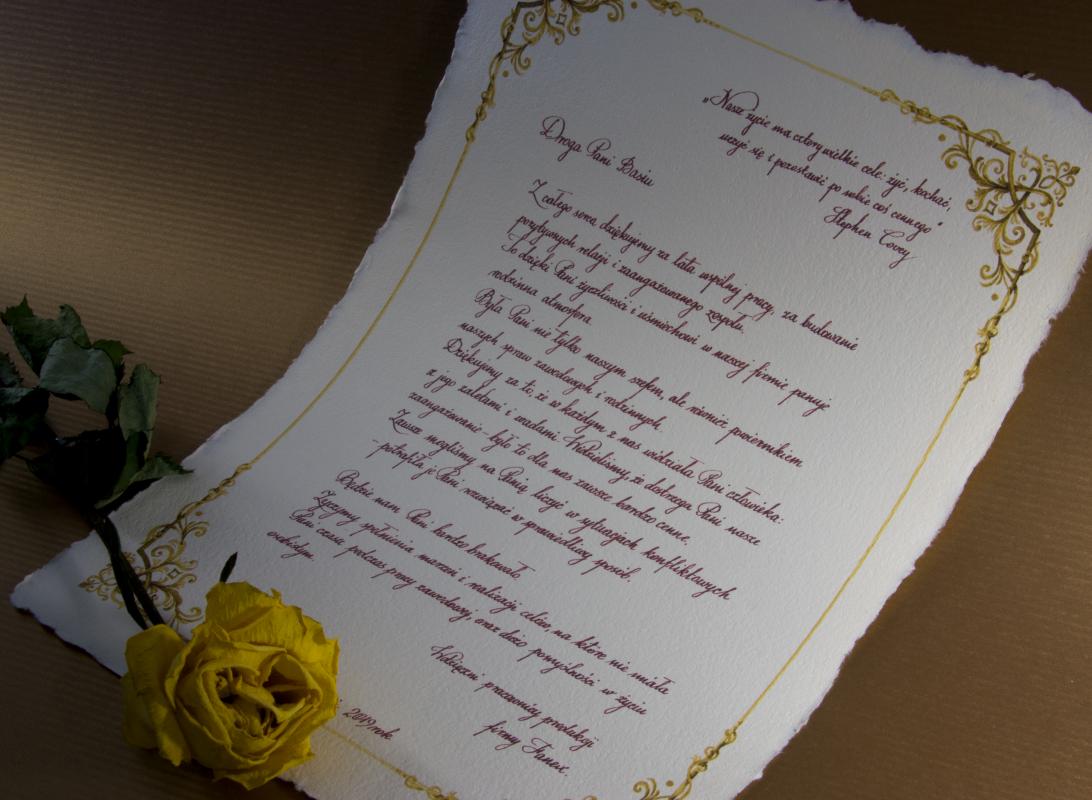 „Nasze życie ma cztery wielkie cele: żyć, kochać,
uczyć się i pozostawić po sobie coś cennego”
Stephen Covey
Droga Pani Basiu
Z całego serca dziękujemy za lata wspólnej pracy, za budowanie
pozytywnych relacji i zaangażowanego zespołu.
To dzięki Pani życzliwości i uśmiechowi w naszej firmie panuje
rodzinna atmosfera.
Była Pani nie tylko naszym szefem, ale również powiernikiem
naszych spraw zawodowych i rodzinnych.
Dziękujemy za to, że w każdym z nas widziała Pani człowieka:
z jego zaletami i wadami. Widzieliśmy, że dostrzega Pani nasze
zaangażowanie - było to dla nas zawsze bardzo cenne.
Zawsze mogliśmy na Panią liczyć w sytuacjach konfliktowych
- potrafiła je Pani rozwiązać w sprawiedliwy sposób.
Będzie nam Pani bardzo brakowało.
Życzymy spełnienia marzeń i realizacji celów, na które nie miała
Pani czasu podczas pracy zawodowej, oraz dużo pomyślności w życiu
osobistym.
Wdzięczni pracownicy produkcji
firmy
2019 rok